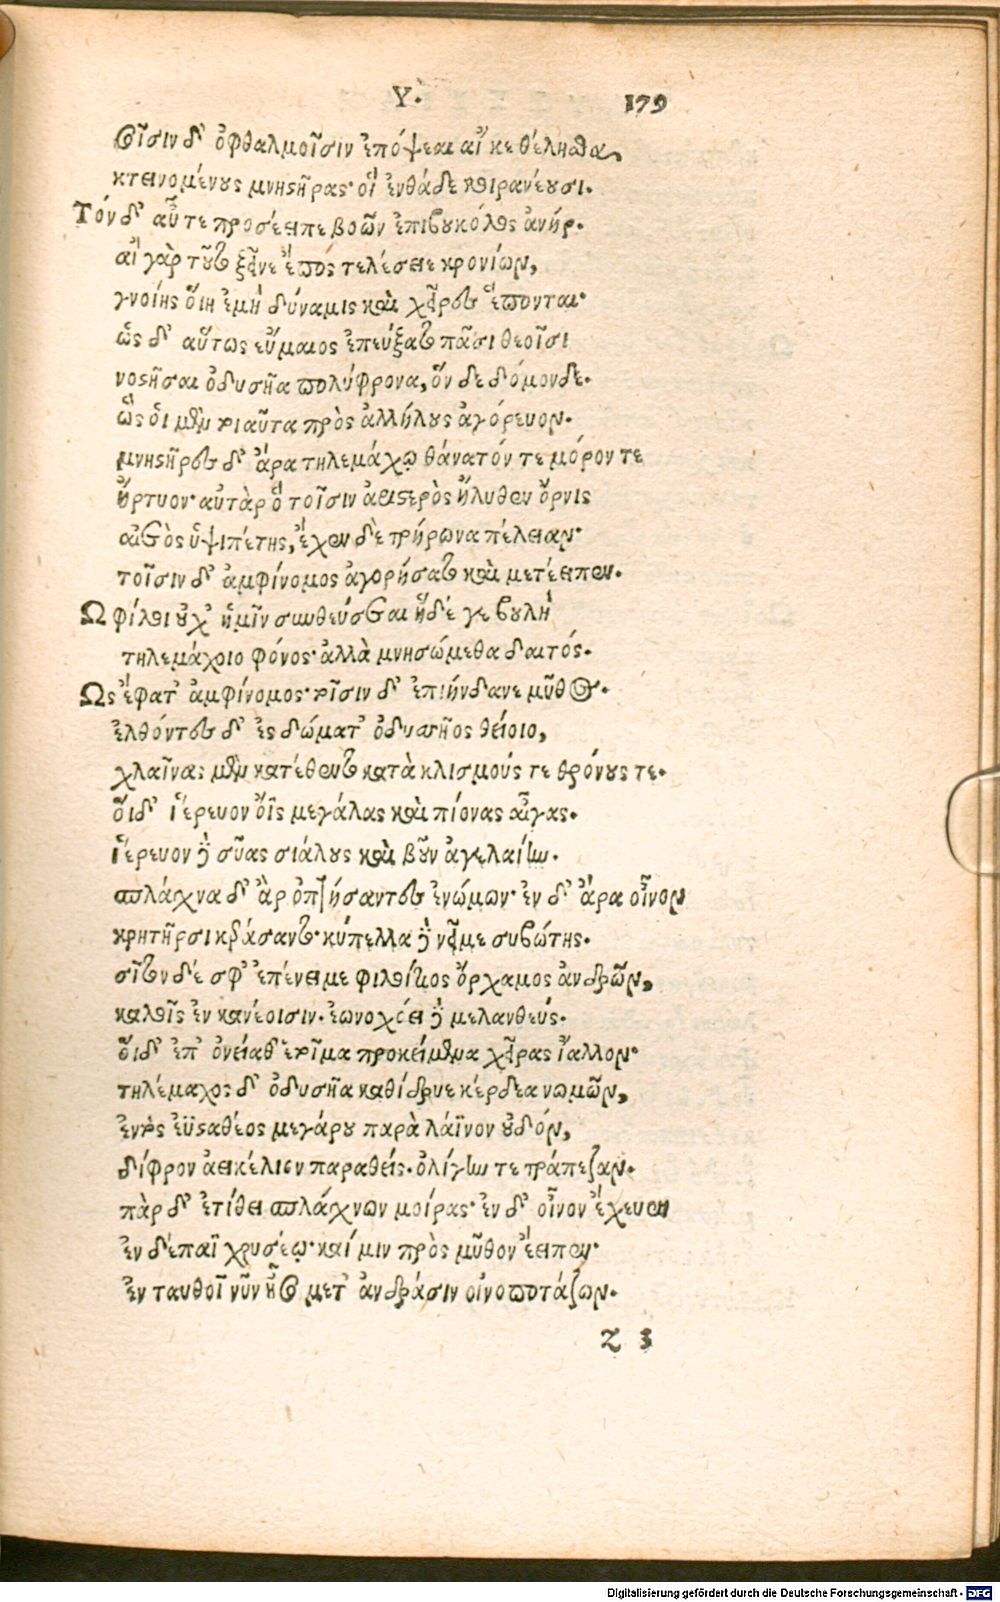 Υ. 179
σοῖσιν δ' ὀφθαλμοῖσιν ἐπόψεαι αἴ κε θέλησθα,
κτεινομένους μνηστῆρας· οἳ ἐνθάδε κοιρανέουσι.
Τόν δ' αὖτε προσέειπε βοῶν ἐπιβουκόλος ἀνήρ.
αἲ γὰρ τοῦτο ξεῖνε ἔπος τελέσειε κρονίων,
γνοίης οἵη ἐμὴ δύναμις καὶ χεῖρες ἕπονται·
ὣς δ' αὕτως εὔμαιος ἐπεύξατο πᾶσι θεοῖσι
νοστῆσαι ὀδυσῆα πολύφρονα, ὅν δε δόμονδε.
ὣς ὁι μὲν τοιαῦτα πρὸς ἀλλήλους ἀγόρευον.
μνηστῆρες δ' ἄρα τηλεμάχῳ θάνατόν τε μόρον τε
ἤρτυον· αὐτὰρ ὃ τοῖσιν ἀειστερὸς ἤλυθεν ὄρνις
αἰετὸς ὑψιπέτης, ἔχεν δὲ τρήρωνα πέλειαν·
τοῖσιν δ' ἀμφίνομος ἀγορήσατο καὶ μετέειπεν.
Ω φίλοι οὐχ' ἡμῖν συνθεύσεται ἥδέ γε βουλὴ
τηλεμάχοιο φόνος· ἀλλὰ μνησώμεθα δαιτός.
Ως ἔφατ' ἀμφίνομος· τοῖσιν δ' ἐπιήνδανε μῦθος.
ἐλθόντες δ' ἐς δώματ' ὀδυσσῆος θείοιο,
χλαῖνας μὲν κατέθεντο κατὰ κλισμούς τε θρόνους τε.
ὅιδ' ἱέρευον ὄϊς μεγάλας καὶ πίονας αἶγας.
ἱέρευον δὲ σῦας σιάλους καὶ βοῦν ἀγελαίην.
σπλάχνα δ' ἂρ ὀπτήσαντες ἐνώμων· ἐν δ' ἄρα οἶνον
κρητῆρσι κεράσαντο· κύπελλα δὲ νεῖμε συβώτης.
σῖτον δέ σφ' ἐπένειμε φιλοίτιος ὄρχαμος ἀνδρῶν,
καλοῖς ἐν κανέοισιν· ἐωνοχόει δὲ μελανθεύς.
ὅιδ' ἐπ' ὀνείαθ' ἑτοῖμα προκείμενα χεῖρας ἴαλλον·
τηλέμαχος δ' ὀδυσῆα καθίδρυε κέρδεα νωμῶν,
ἐντὸς ἐϋσταθέος μεγάρου παρὰ λάϊνον οὐδόν,
δίφρον ἀεικέλιον παραθείς. ὀλίγην τε τράπεζαν.
πὰρ δ' ἐτίθει σπλάχνων μοίρας· ἐν δ' οἶνον ἔχευεν
ἐν δέπαϊ χρυσέῳ· καί μιν πρὸς μῦθον ἔειπεν·
ἐν ταυθοῖ νῦν ἧσο μετ' ἀνδράσιν οἰνοποτάζων.
Z 3
Digitalisierung gefördert durch die Deutsche Forschungsgemeinschaft - DFG